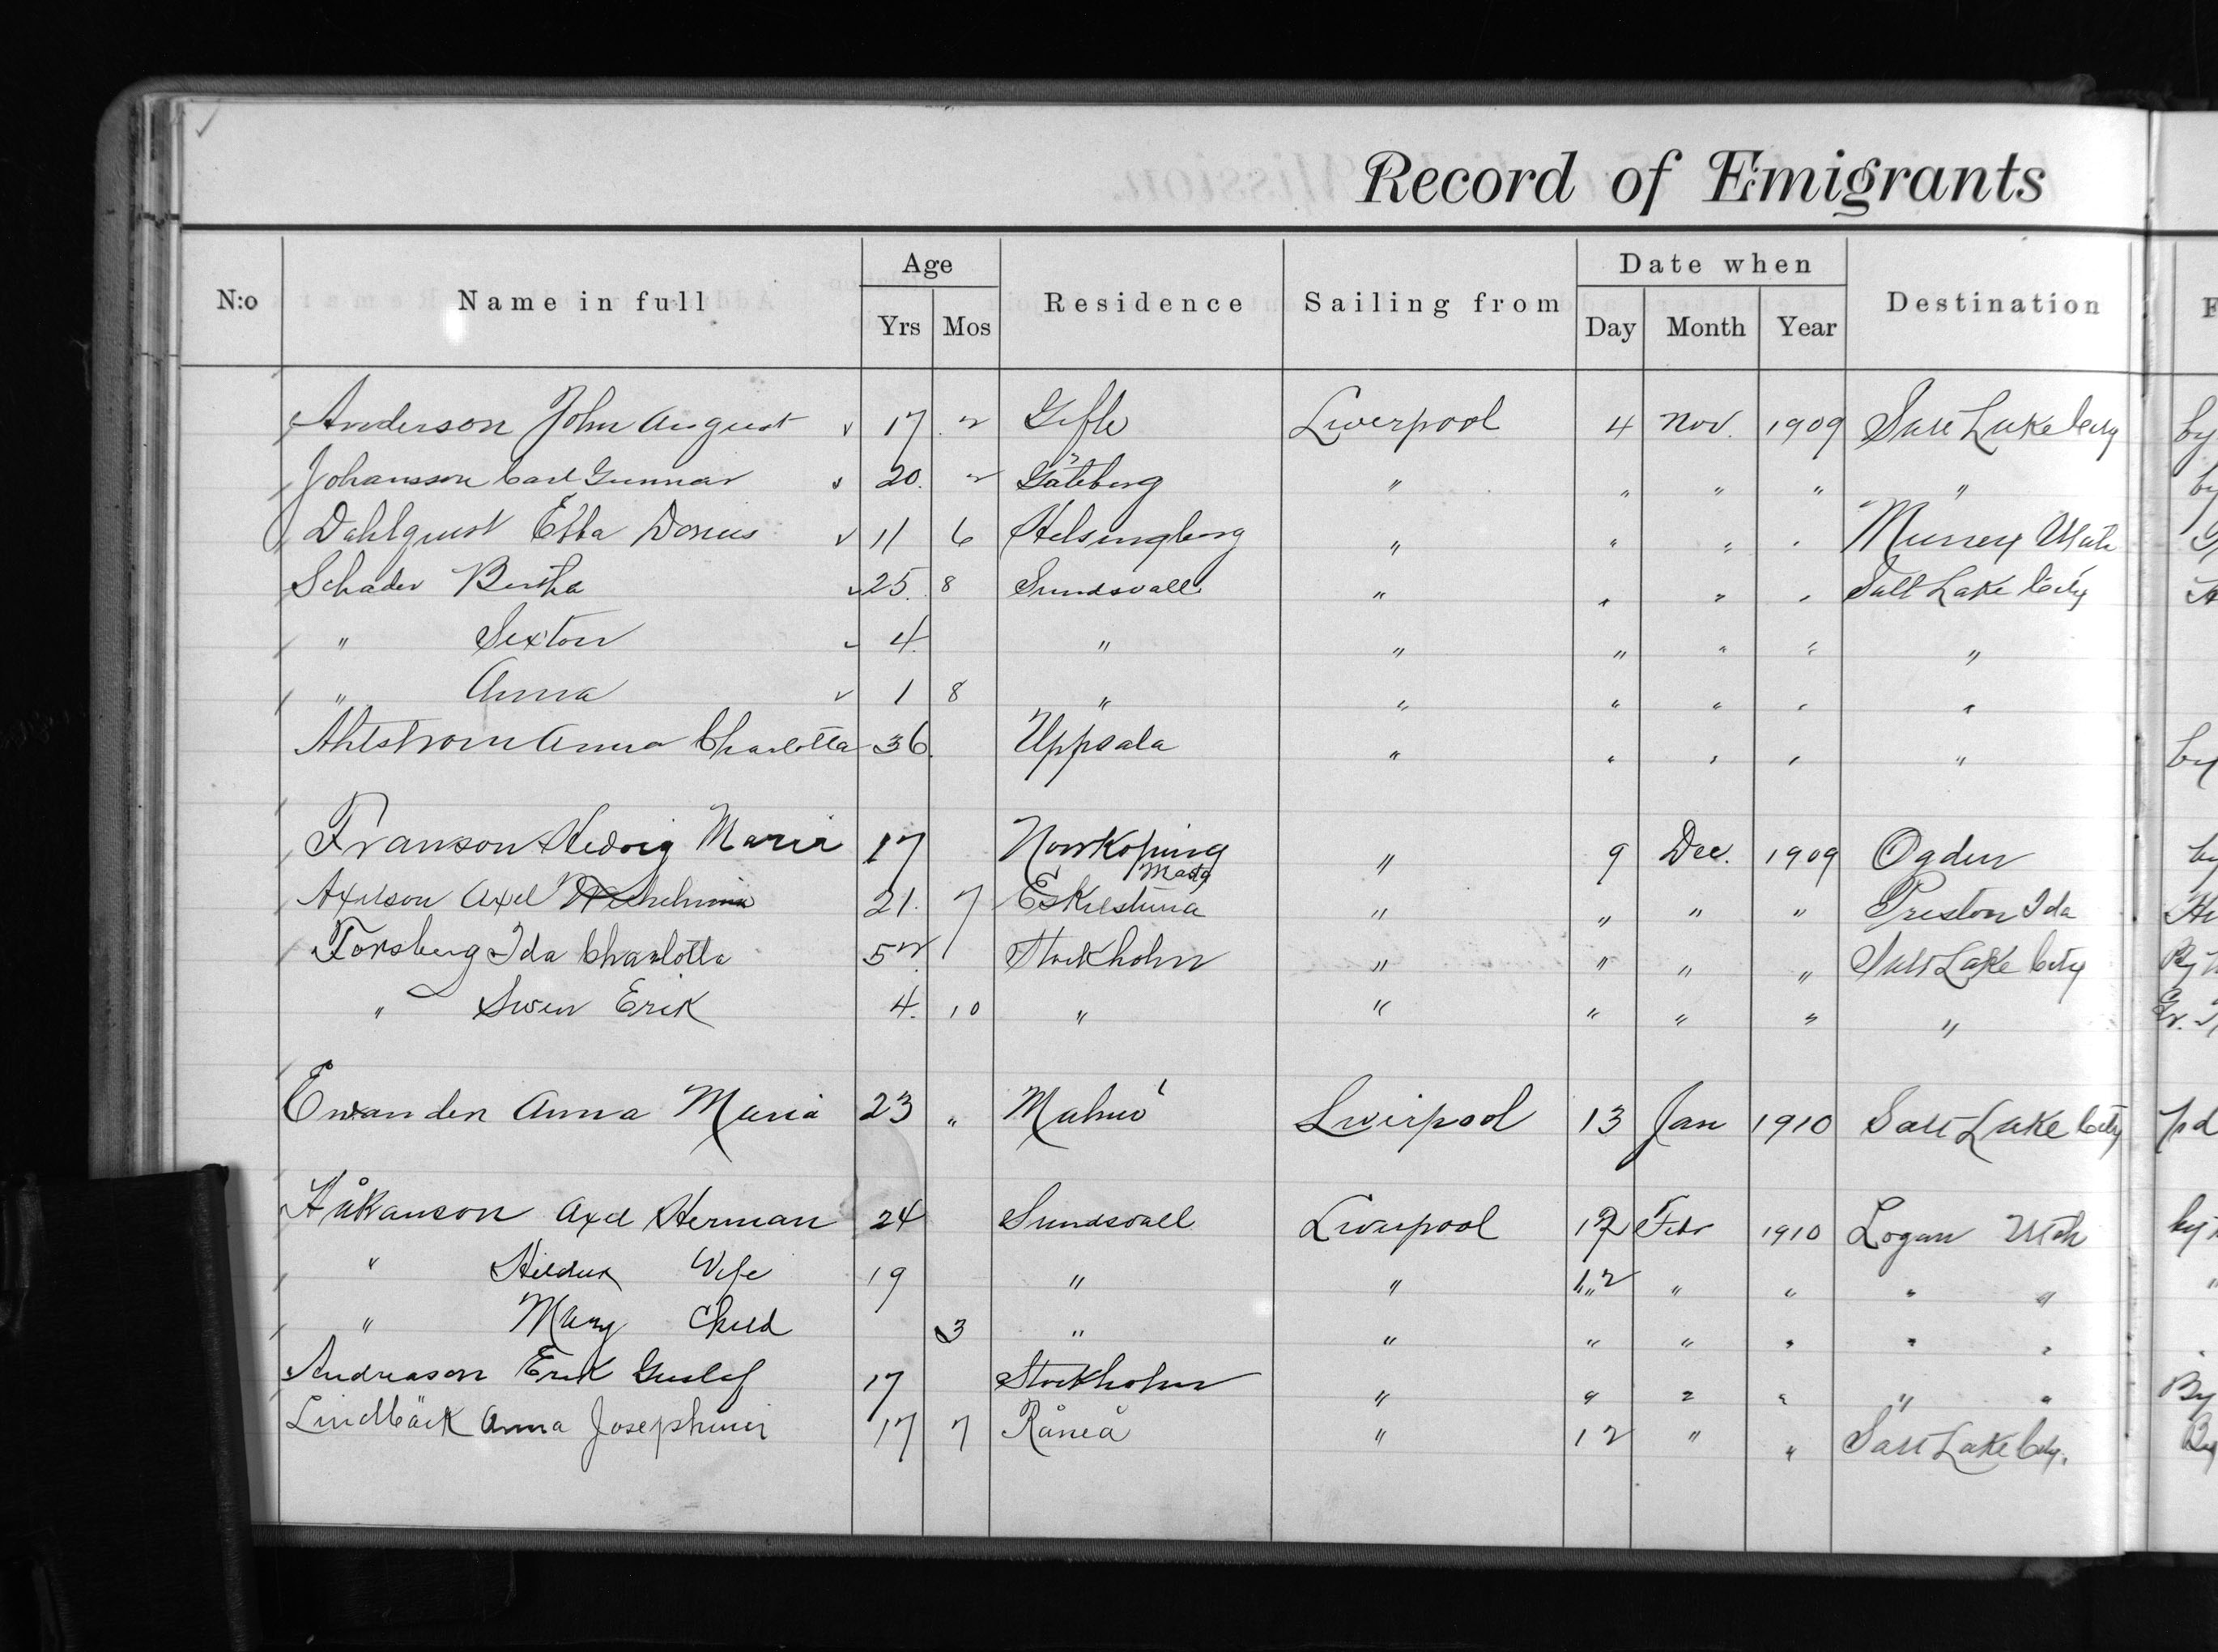 Record of Emigrants
N:o Name in full Age Yrs Mos Residence Sailing from Date when Day Month Year Destination
Anderson John August v 17 " Gefle Liverpool 4 Nov. 1909 Salt Lake City by
Johansson Carl Gunnar v 20. " Göteborg " " " " " by
Dahlquist Ebba Dorius v 11 6 Helsingborg " " " " Murrey Utah
Schader Bertha v 25. 8 Sundsvall " " " " Salt Lake City
" Sexton v 4. " " " " " "
" Anna v 1 8 " " " " " "
Ahlstrom Anna Charlotta 36. Uppsala " " " " " by
Franson Hedvig Maria 17 Norrköping " 9 Dec. 1909 Ogden by
Axelson Axel 21. 7 Eskilstuna " " " " Preston Ida
Forsberg Ida Charlotta 52. Stockholm " " " " Salt Lake City
" Swen Erik 4. 10 " " " " " "
Ewanden Anna Maria 23 " Malmö Liverpool 13 Jan 1910 Salt Lake City pd
Håkanson Axel Herman 24 Sundsvall Liverpool 12 Febr 1910 Logan Utah by
" Hildur Wife 19 " " 12 " " " " "
" Mary Child 3 " " " " " " "
Andreason Erik Gustaf 17 Stockholm " " " " " " By
Lindbäck Anna Josephina 17 7 Råneå " 12 " " Salt Lake City. By